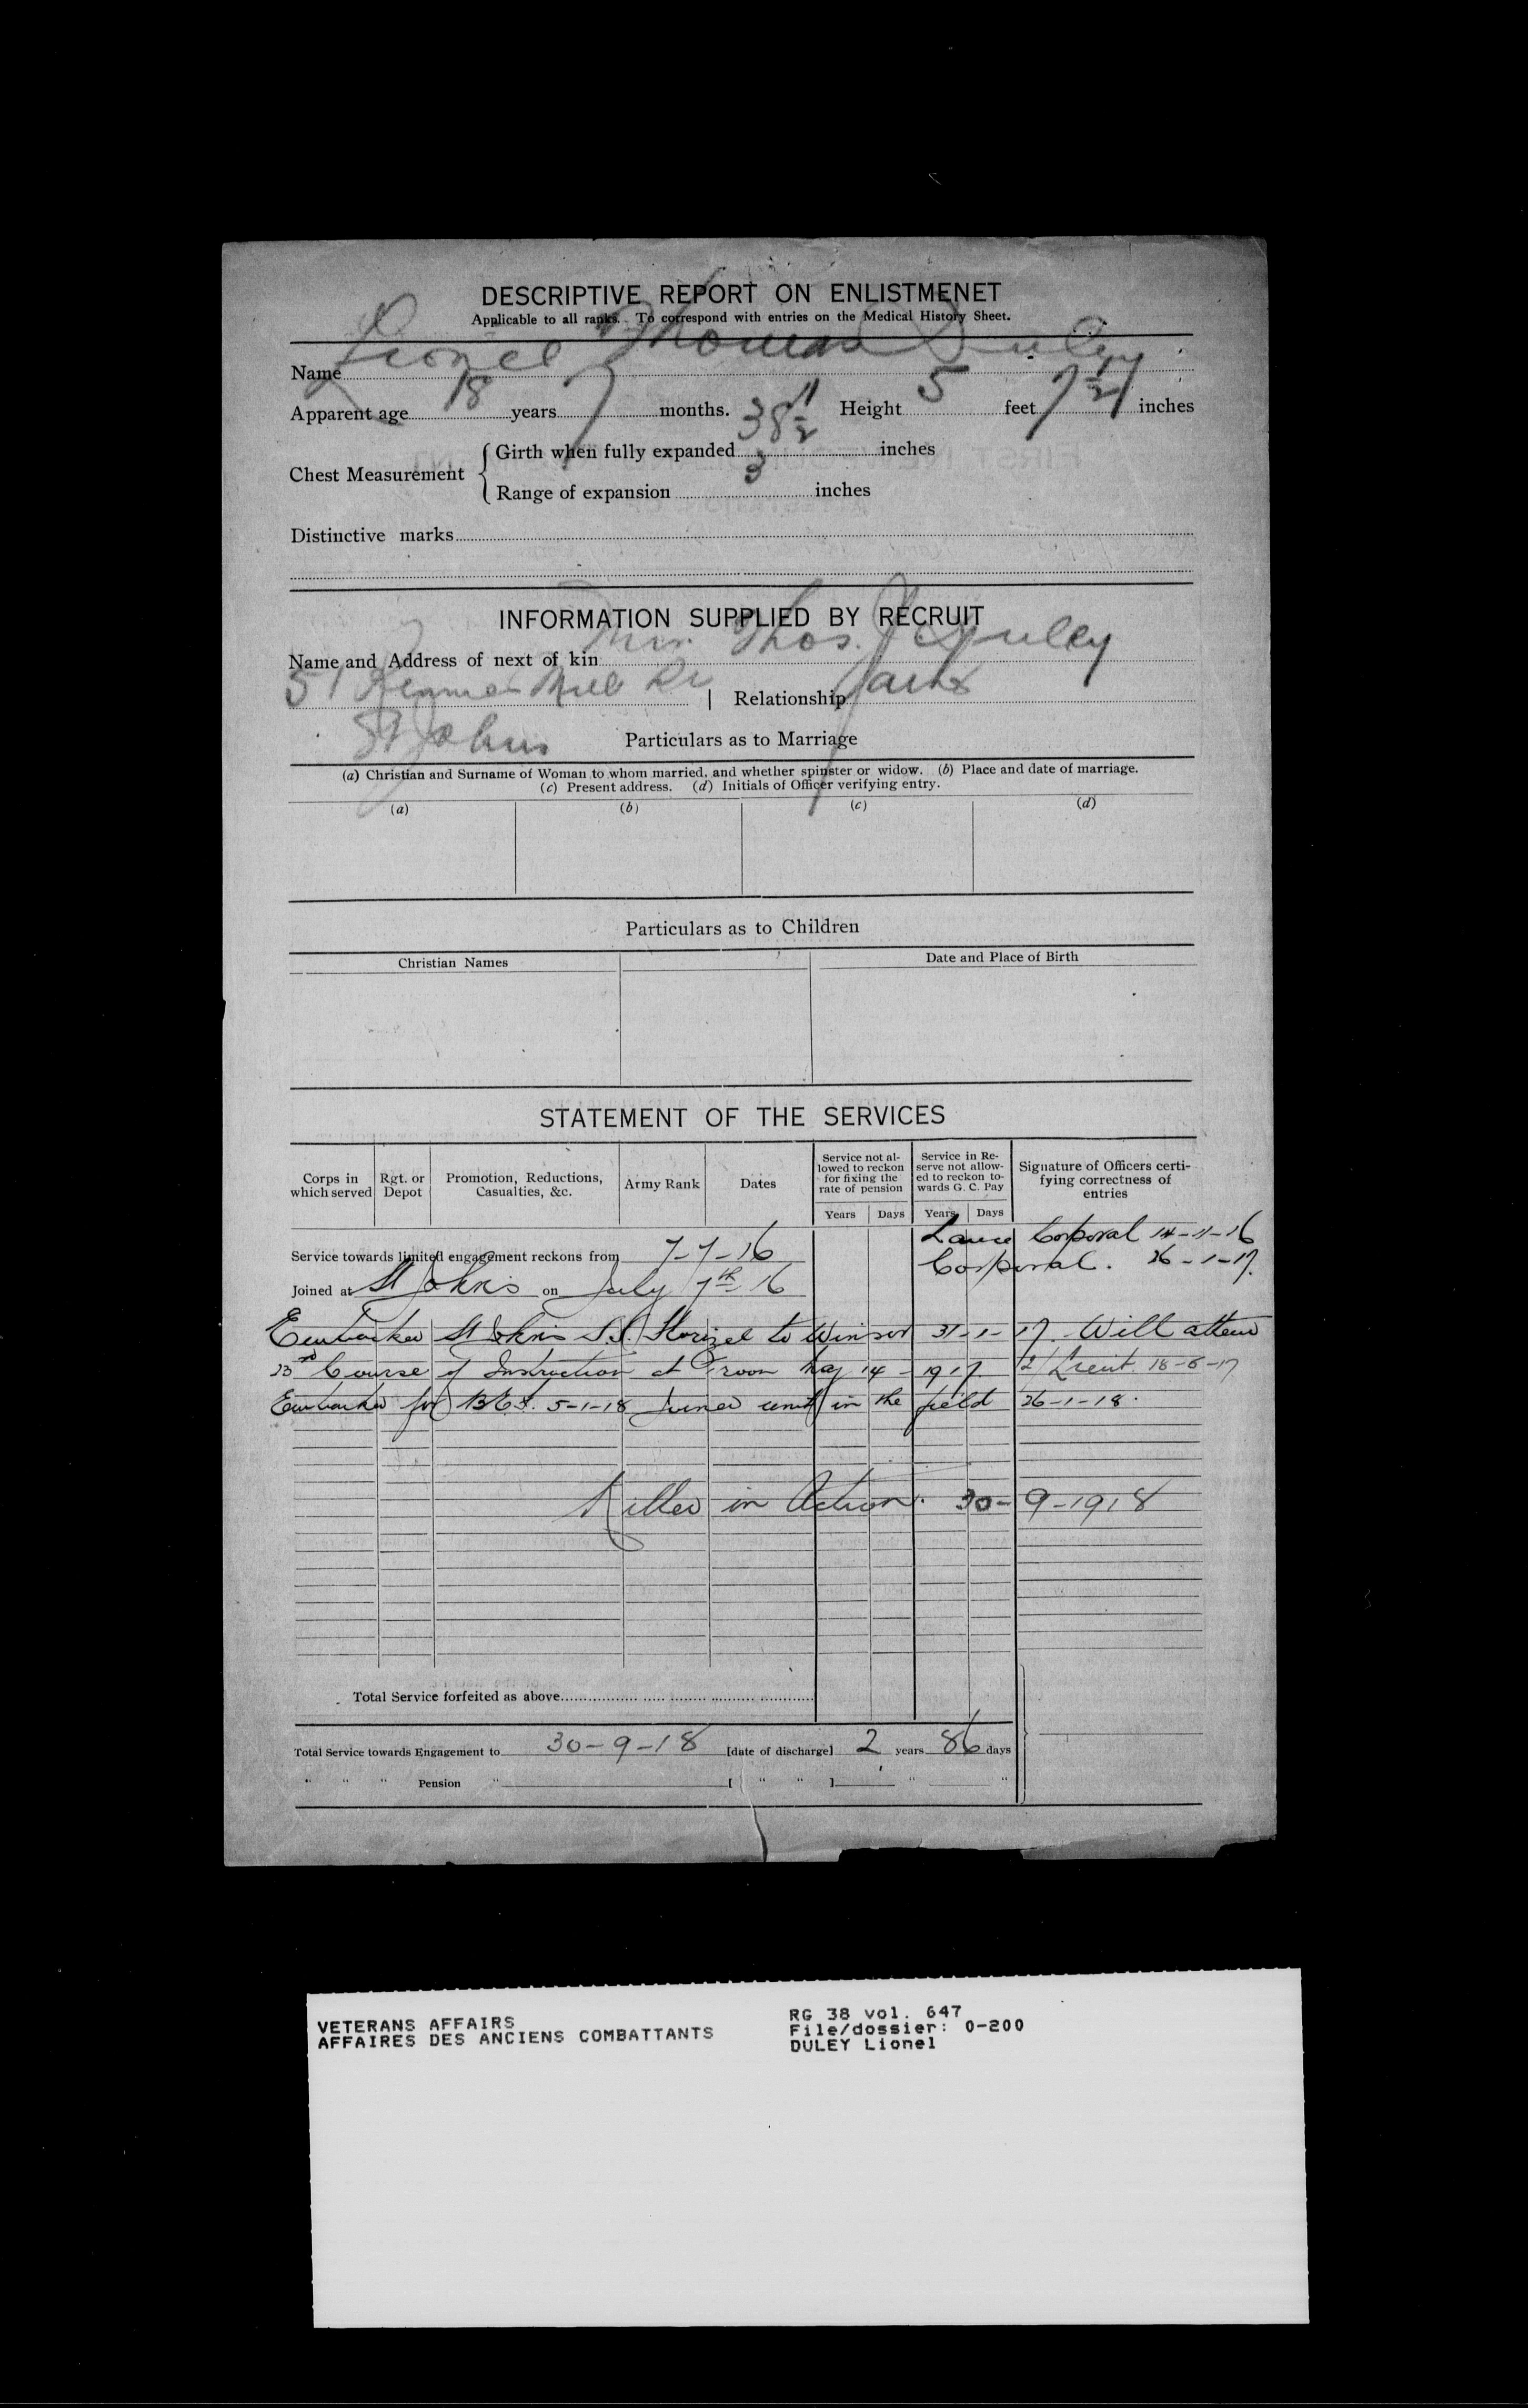 DESCRIPTIVE REPORT ON ENLISTMENET
Applicable to all ranks. To correspond with entries on the Medical History Sheet.
Name Lionel Thomas Duley
Apparent age 18 years 7 months. Height 5 feet 7 1/2 inches
Chest Measurement { Girth when fully expanded 38 1/2" inches
Range of expansion 3 inches
Distinctive marks
INFORMATION SUPPLIED BY RECRUIT
Name and Address of next of kin Thos. J Duley
51 Mill Rd | Relationship
St Johns
Particulars as to Marriage
(a) Christian and Surname of Woman to whom married, and whether spinster or widow. (b) Place and date of marriage.
(c) Present address. (d) Initials of Officer verifying entry.
(a) (b) (c) (d)
Particulars as to Children
Christian Names Date and Place of Birth
STATEMENT OF THE SERVICES
Corps in which served Rgt. or Depot Promotion, Reductions, Casualties, &c. Army Rank Dates Service not allowed to reckon for fixing the rate of pension Service in Reserve not allowed to reckon towards G. C. Pay Signature of Officers certifying correctness of entries
Years Days Years Days
Lance Corporal 14-11-16
Service towards limited engagement reckons from 7-7-16 Corporal. 26-1-17.
Joined at St Johns on July 7th 16
Embarked St Johns S.S. Florizel to Winsor 31-1-17. Will attend
Course of Instruction at Troon May 14-1917. 2/Lieut 18-6-17
Embarked for B.E.F. 5-1-18 Joined unit in the field 26-1-18.
Killed in Action. 30-9-1918
Total Service forfeited as above
Total Service towards Engagement to 30-9-18 [date of discharge] 2 years 86 days
" " " Pension " [ " " ] " "
VETERANS AFFAIRS
AFFAIRES DES ANCIENS COMBATTANTS
RG 38 vol. 647
File/dossier: 0-200
DULEY Lionel